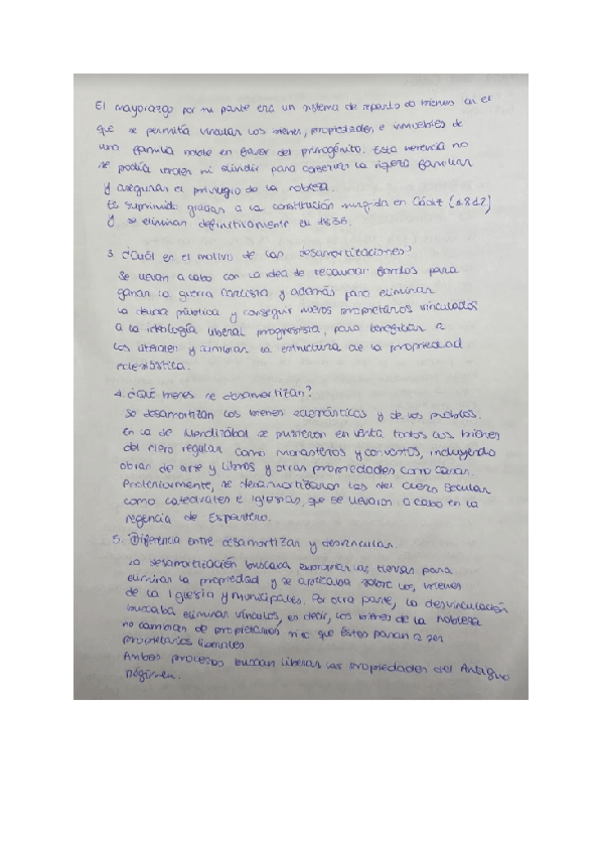 El mayorazgo por su parte era un sistema de reparto de bienes en el
que se permitía vincular los bienes, propiedades e inmuebles de
una familia noble en favor del primogénito. Esta herencia no
se podía vender ni dividir para conservar la riqueza familiar
y asegurar el privilegio de la nobleza.
Es suprimido gracias a la constitución surgida en Cádiz (1812)
y se eliminan definitivamente en 1836.
3. ¿Cuál es el motivo de las desamortizaciones?
Se llevan a cabo con la idea de recaudar fondos para
ganar la guerra carlista y además para eliminar
la deuda pública y conseguir nuevos propietarios vinculados
a la ideología liberal progresista, para beneficiar a
los liberales y cambiar la estructura de la propiedad
eclesiástica.
4. ¿Qué bienes se desamortizan?
Se desamortizan los bienes eclesiásticos y de los pueblos.
En la de Mendizábal se pusieron en venta todos los bienes
del clero regular como monasterios y conventos, incluyendo
obras de arte y libros y otras propiedades como casas.
Posteriormente, se desamortizaron los del clero secular
como catedrales e iglesias, que se llevaron a cabo en la
regencia de Espartero.
5. Diferencia entre desamortizar y desvincular.
La desamortización buscaba expropiar las tierras para
eliminar la propiedad y se aplicaba sobre los bienes
de la Iglesia y municipales. Por otra parte, la desvinculación
buscaba eliminar vínculos, es decir, los bienes de la nobleza
no cambian de propietarios sino que éstos pasan a ser
propietarios liberales
Ambos procesos buscan liberar las propiedades del Antiguo
Régimen.